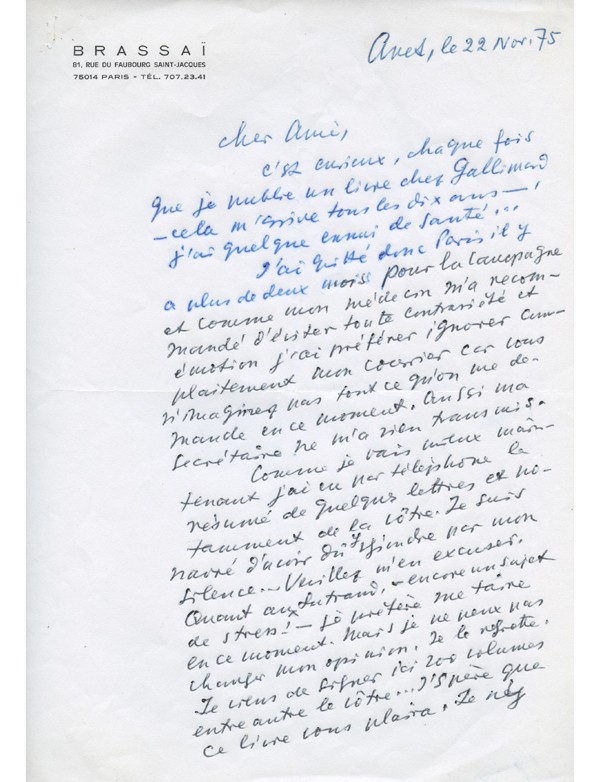 BRASSAÏ
81, RUE DU FAUBOURG SAINT-JACQUES
75014 PARIS - TÉL. 707.23.41
Anet, le 22 Nov. 75
cher Ami,
c'est curieux, chaque fois
que je publie un livre chez Gallimard
- cela m'arrive tous les dix ans -,
j'ai quelque ennui de santé...
J'ai quitté donc Paris il y
a plus de deux mois pour la campagne
et comme mon médecin m'a recom-
mandé d'éviter toute contrariété et
émotion j'ai préférer ignorer com-
plaitement mon courrier car vous
n'imaginez pas tout ce qu'on me de-
mande en ce moment. Aussi ma
secrétaire ne m'a rien transmis.
Comme je vais mieux main-
tenant j'ai eu par téléphone le
résumé de quelques lettres et no-
tamment de la vôtre. Je suis
navré d'avoir dû par mon
silence... Veuillez m'en excuser.
Quant aux - encore un sujet
de stress! - je préfère me taire
en ce moment. Mais je ne peux pas
changer mon opinion. Je le regrette.
Je viens de signer ici 200 volumes
entre autre le vôtre... J'espère que
ce livre vous plaira. Je